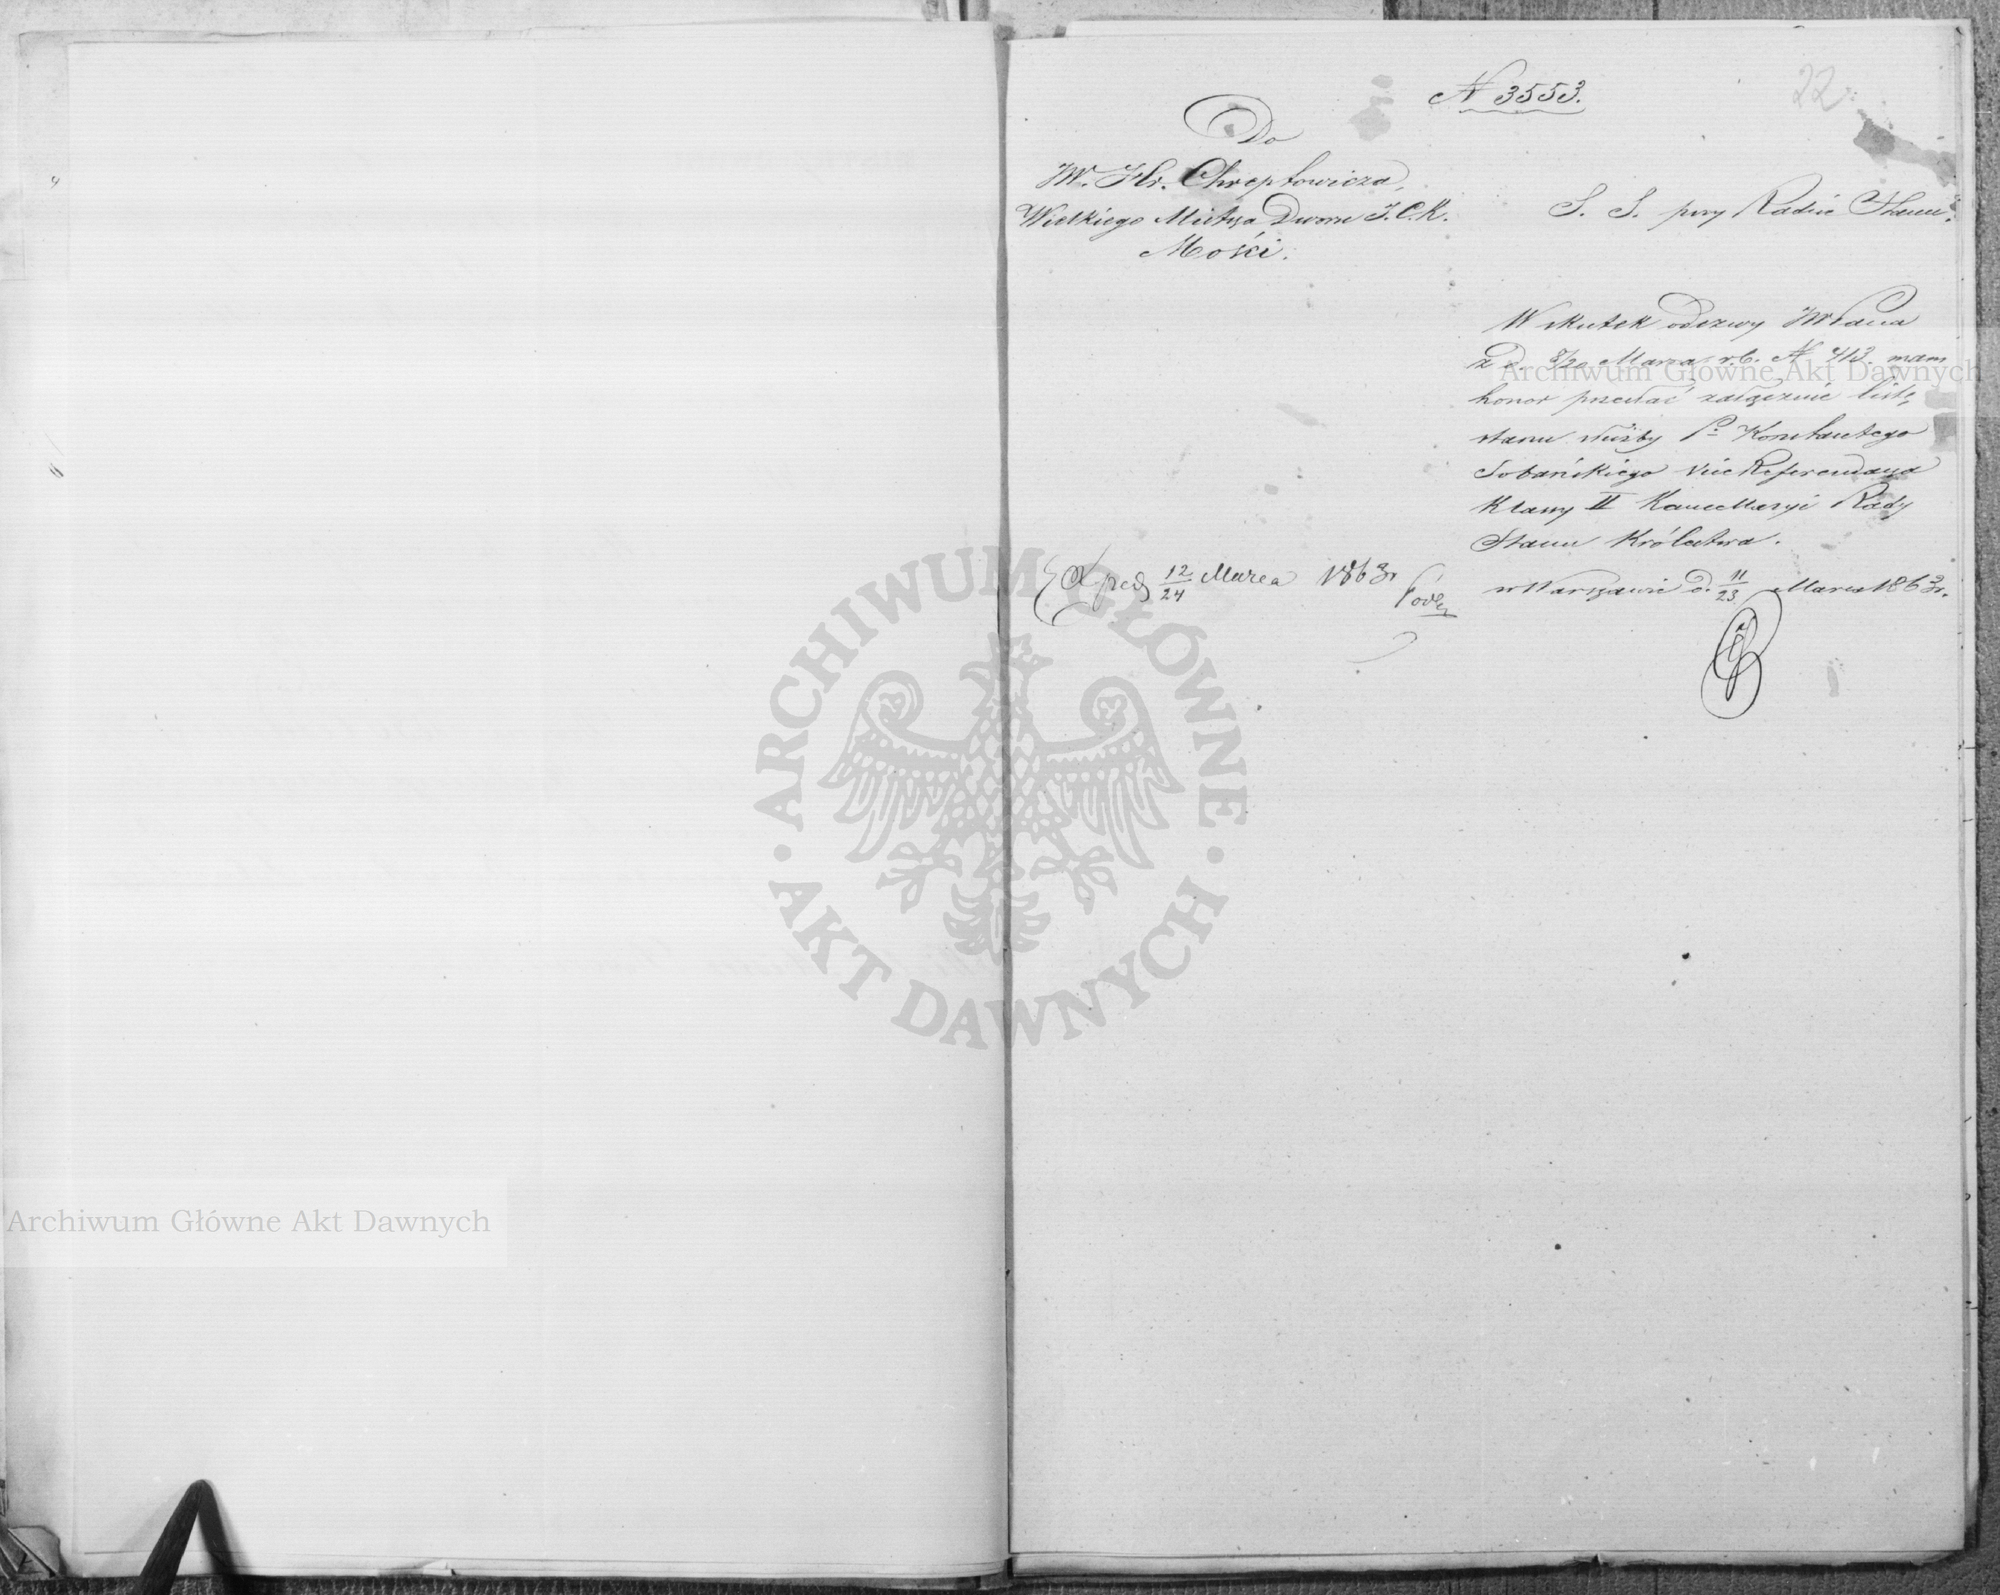 N 3553.
22
Do
JW. Hr. Chreptowicza,
Wielkiego Mistrza Dworu J.C.K.
Mości.
S. S. przy Radzie Stanu.
W skutek odezwy JWPana
z d. 8/20 Marca r.b. N 413. mam
honor przesłać załącznie listę
stanu służby Pa Konstantego
Sobańskiego Vice Referendarza
Klassy II Kancellaryi Rady
Stanu Królestwa.
w Warszawie d. 11/23 Marca 1863 r.
Exped 12/24 Marca 1863 r
Archiwum Główne Akt Dawnych
ARCHIWUM GŁÓWNE · AKT DAWNYCH ·
Archiwum Główne Akt Dawnych